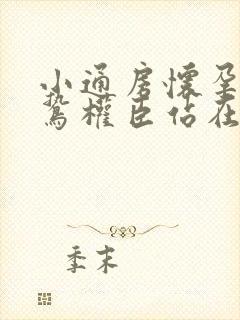 小通房懷孕
鷙權臣佔在
季末